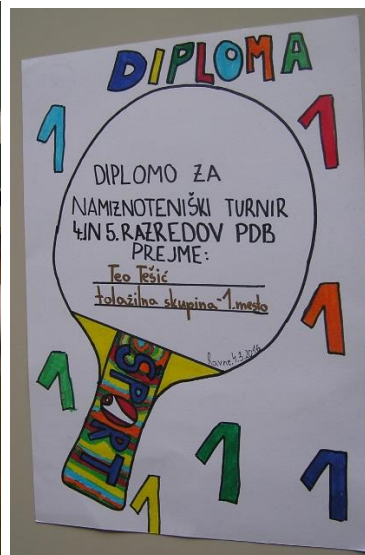 DIPLOMA
1
1
DIPLOMO ZA
NAMIZNOTENIŠKI TURNIR
4.IN 5. RAZREDOV PDB
PREJME:
Teo Tešić
tolažilna skupina-1.mesto
Ravne, 4.3.2016
1
1
ŠPORT
1
1
1